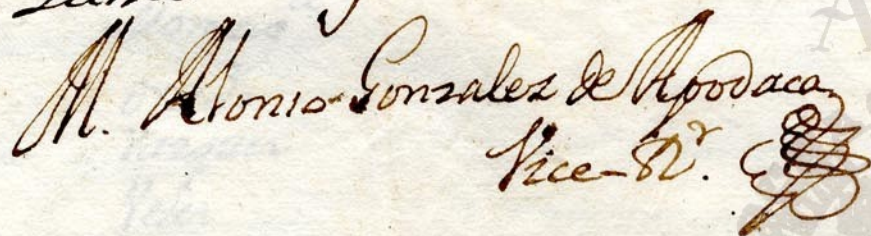 M. Atonio Gonzalez de Apodaca
Vice-Rr.